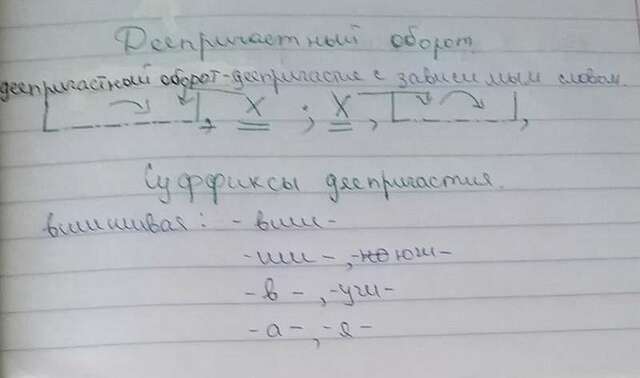 Деепричастный оборот.
деепричастный оборот-деепричастие с зависимым словом.
[ ], X ; X, [ ],
Суффиксы деепричастия.
вшишивая: -вши-
-ши-, -ючи-
-в-, -учи-
-а-, -я-